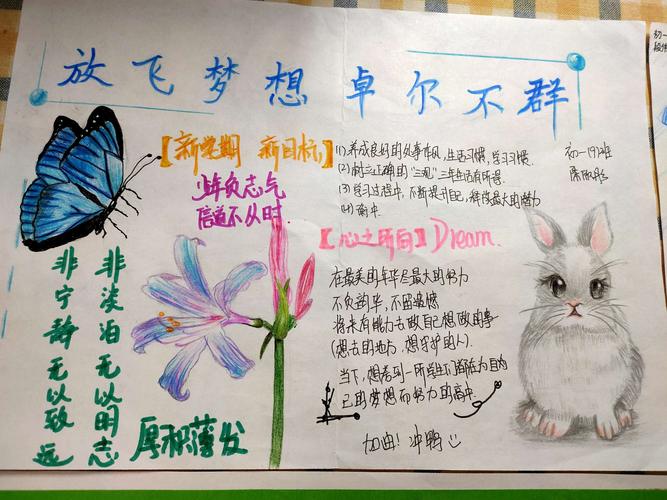 放飞梦想 卓尔不群
【新学期 新目标】
少年负志气
信道不从时
(1) 养成良好的处事作风,生活习惯,学习习惯.
(2) 树立正确的"三观",三年生活有所得.
(3) 学习过程中,不断提升自己,释放最大的努力
(4) 高中.
初一(9)班
【心之所向】Dream.
在最美的年华尽最大的努力
不负韶华,不留遗憾
将来有能力去做自己想做的事
(想去的地方,想守护的人).
当下,想看到一所学生们都在为自
己的梦想而努力的高中.
加油!冲鸭
非淡泊无以明志
非宁静无以致远
厚积薄发
初一